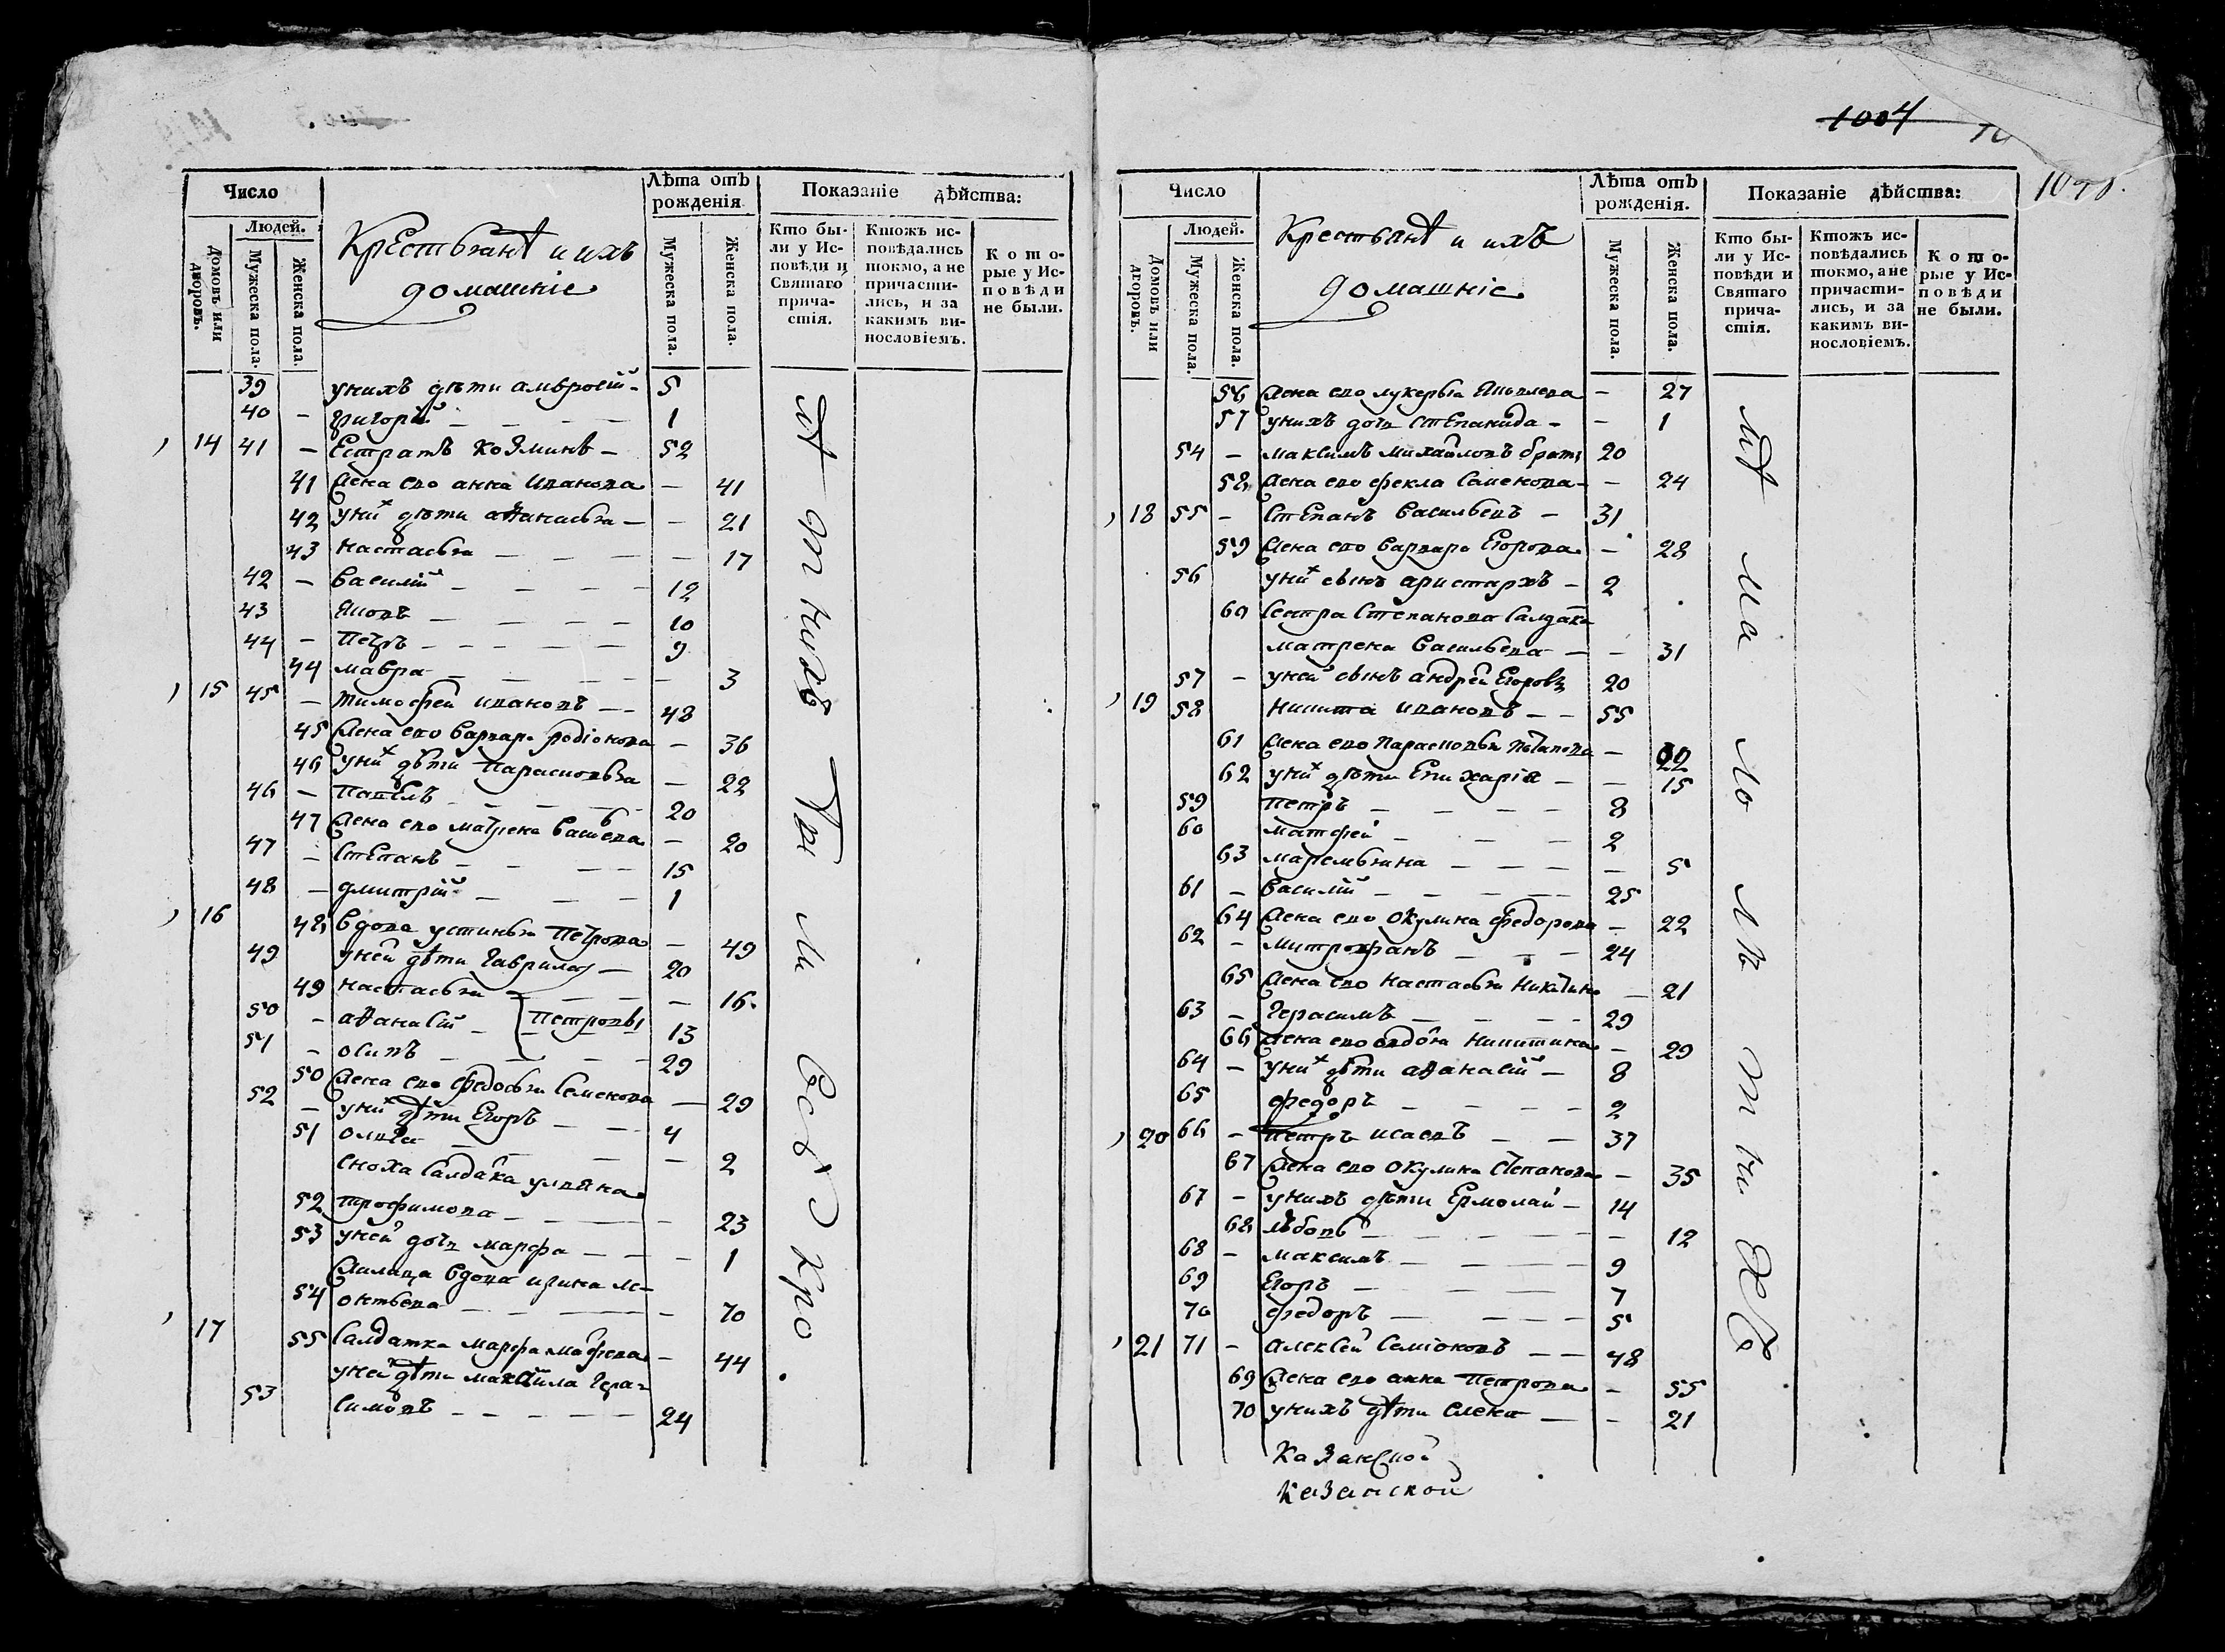 1004
Число
Людей.
Домовъ или дворовъ.
Мужеска пола.
Женска пола.
Крестьянѣ и ихъ
домашніе
Лѣта отъ рожденія
Мужеска пола.
Женска пола.
Показаніе дѣйства:
Кто были у Исповѣди и Святаго причастія.
Ктожъ исповѣдались токмо, а не причастились, и за какимъ винословіемъ.
Которые у Исповѣди не были.
39 унихъ дѣти амвросій - 5
40 - григорій - - - 1
14 41 - Естратъ Козминъ - 52
41 Жена ево анна Иванова - 41
42 уних дѣти аѳанасья - - 21
43 настасья - - - - 17
42 - Василій - - - - 12
43 Яковъ - - - - 10
44 - Петръ - - - - 9
44 мавра - - - - 3
15 45 - тимофей ивановъ - - 48
45 Жена ево варвара родіонова - 36
46 уних дѣти парасковья - 22
46 - павелъ - - - 20
47 Жена ево матрена васильева - 20
47 - Степанъ - - - 15
48 - дмитрій - - - 1
16 48 вдова устинья петрова - 49
49 уней дѣти гаврила - 20
49 настасья - - - - 16
50 - аѳанасій - петровы 13
51 - осипъ - - - - 29
50 Жена ево федосья Семенова - 29
52 - уних дѣти Егоръ - - 4
51 олена - - - - 2
сноха салдатка ульяна
52 трофимова - - - - 23
53 уней дочь марфа - - - 1
вдова ирина
54 - - - 70
17 55 Салдатка марфа - 44
уней дѣти михайла гера-
53 симовъ - - - - 24
Число
Людей.
Домовъ или дворовъ.
Мужеска пола.
Женска пола.
Крестьянѣ и ихъ
домашніе
Лѣта отъ рожденія.
Мужеска пола.
Женска пола.
Показаніе дѣйства:
Кто были у Исповѣди и Святаго причастія.
Ктожъ исповѣдались токмо, а не причастились, и за какимъ винословіемъ.
Которые у Исповѣди не были.
56 Жена ево лукерья Яковлева - 27
57 унихъ дочь степанида - - 1
54 - максимъ михайловъ братъ 20
58 Жена ево фекла Семенова - - 24
18 55 - Степанъ Васильевъ - 31
59 Жена ево варвара Егорова - 28
56 уних сынъ аристархъ - 2
60 Сестра Степанова Салдатка
матрена Васильева - - 31
57 - уней сынъ андрей Егоровъ 20
19 58 никита ивановъ - - 55
61 Жена ево парасковья потапова -
62 уних дѣти Епихарія - - 15
59 петръ - - - - 8
60 матфей - - - 2
63 маремьяна - - - - 5
61 - Василій - - - - 25
64 Жена ево окулина федорова - 22
62 - митрофанъ - - - 24
65 Жена ево настасья никитина - 21
63 - герасимъ - - - - 29
66 Жена ево авдотья никитина - 29
64 - уних дѣти аѳанасій - 8
65 федоръ - - - - 2
20 66 - петръ исаевъ - - 37
67 Жена ево окулина степанова - 35
67 - унихъ дѣти Ермолай - 14
68 любовь - - - - - 12
68 - максимъ - - - - 9
69 Егоръ - - - - 7
70 федоръ - - - - 5
21 71 - алексей семіоновъ - - 48
69 Жена ево анна петрова - 55
70 унихъ дѣти елена - - 21
Казанской
Казанской